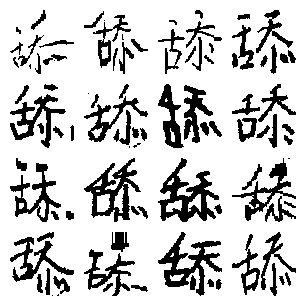 舔舔舔舔
舔舔舔舔
舔舔舔舔
舔舔舔舔